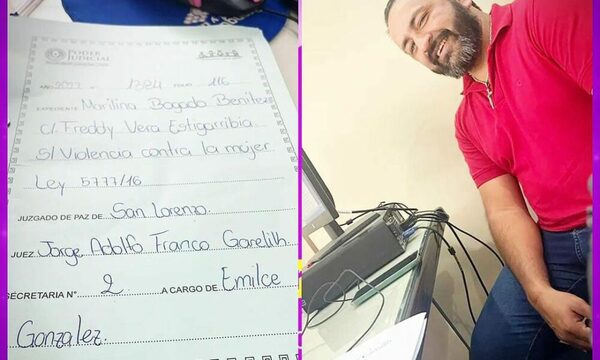 PODER
JUDICIAL
AÑO 2022 - 1384 FOLIO 116
EXPEDIENTE: Marilina Bogado Benítez
c/ Freddy Vera Estigarribia
s/ Violencia contra la mujer
Ley 5777/16
JUZGADO DE PAZ DE San Lorenzo
JUEZ Jorge Adolfo Franco Garelih
SECRETARIA N° 2 A CARGO DE Emilce
Gonzalez.